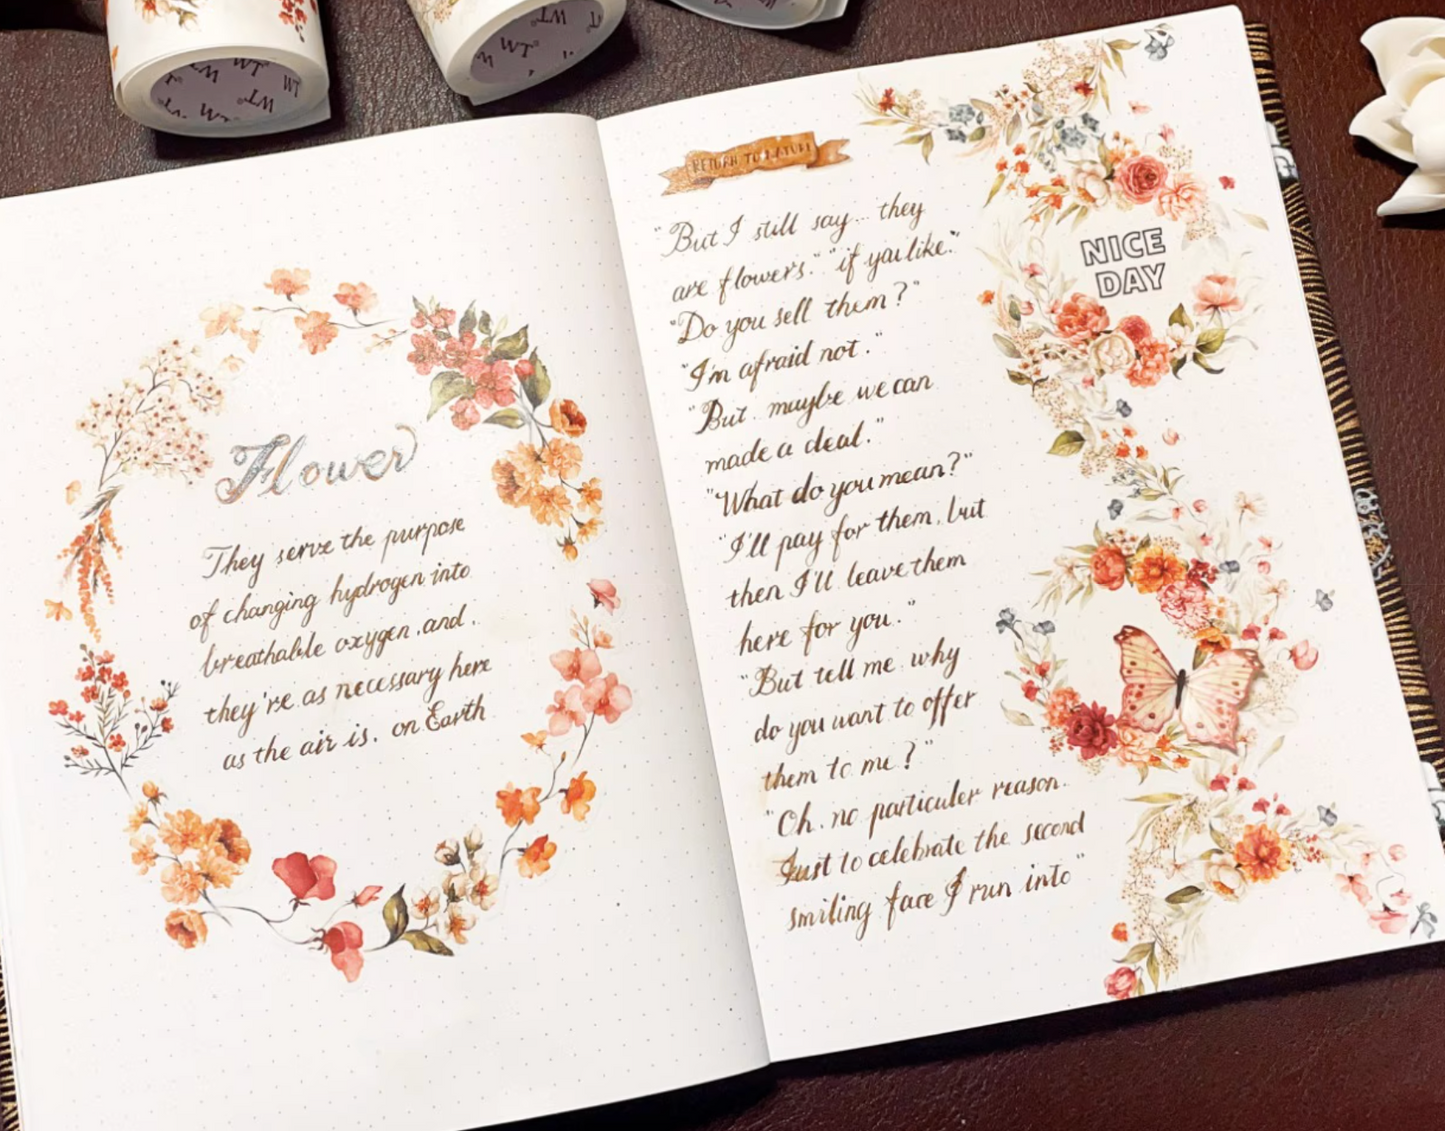 WT®
WT®
WT®
Flower
They serve the purpose
of changing hydrogen into
breathable oxygen, and,
they're as necessary here
as the air is. on Earth
RETURN TO NATURE
"But I still say... they
are flowers." "if you like."
"Do you sell them?"
"I'm afraid not."
"But maybe we can
made a deal."
"What do you mean?"
"I'll pay for them, but
then I'll leave them
here for you."
"But tell me why
do you want to offer
them to me?"
"Oh. no particuler reason.
Just to celebrate the second
smiling face I run into"
NICE
DAY